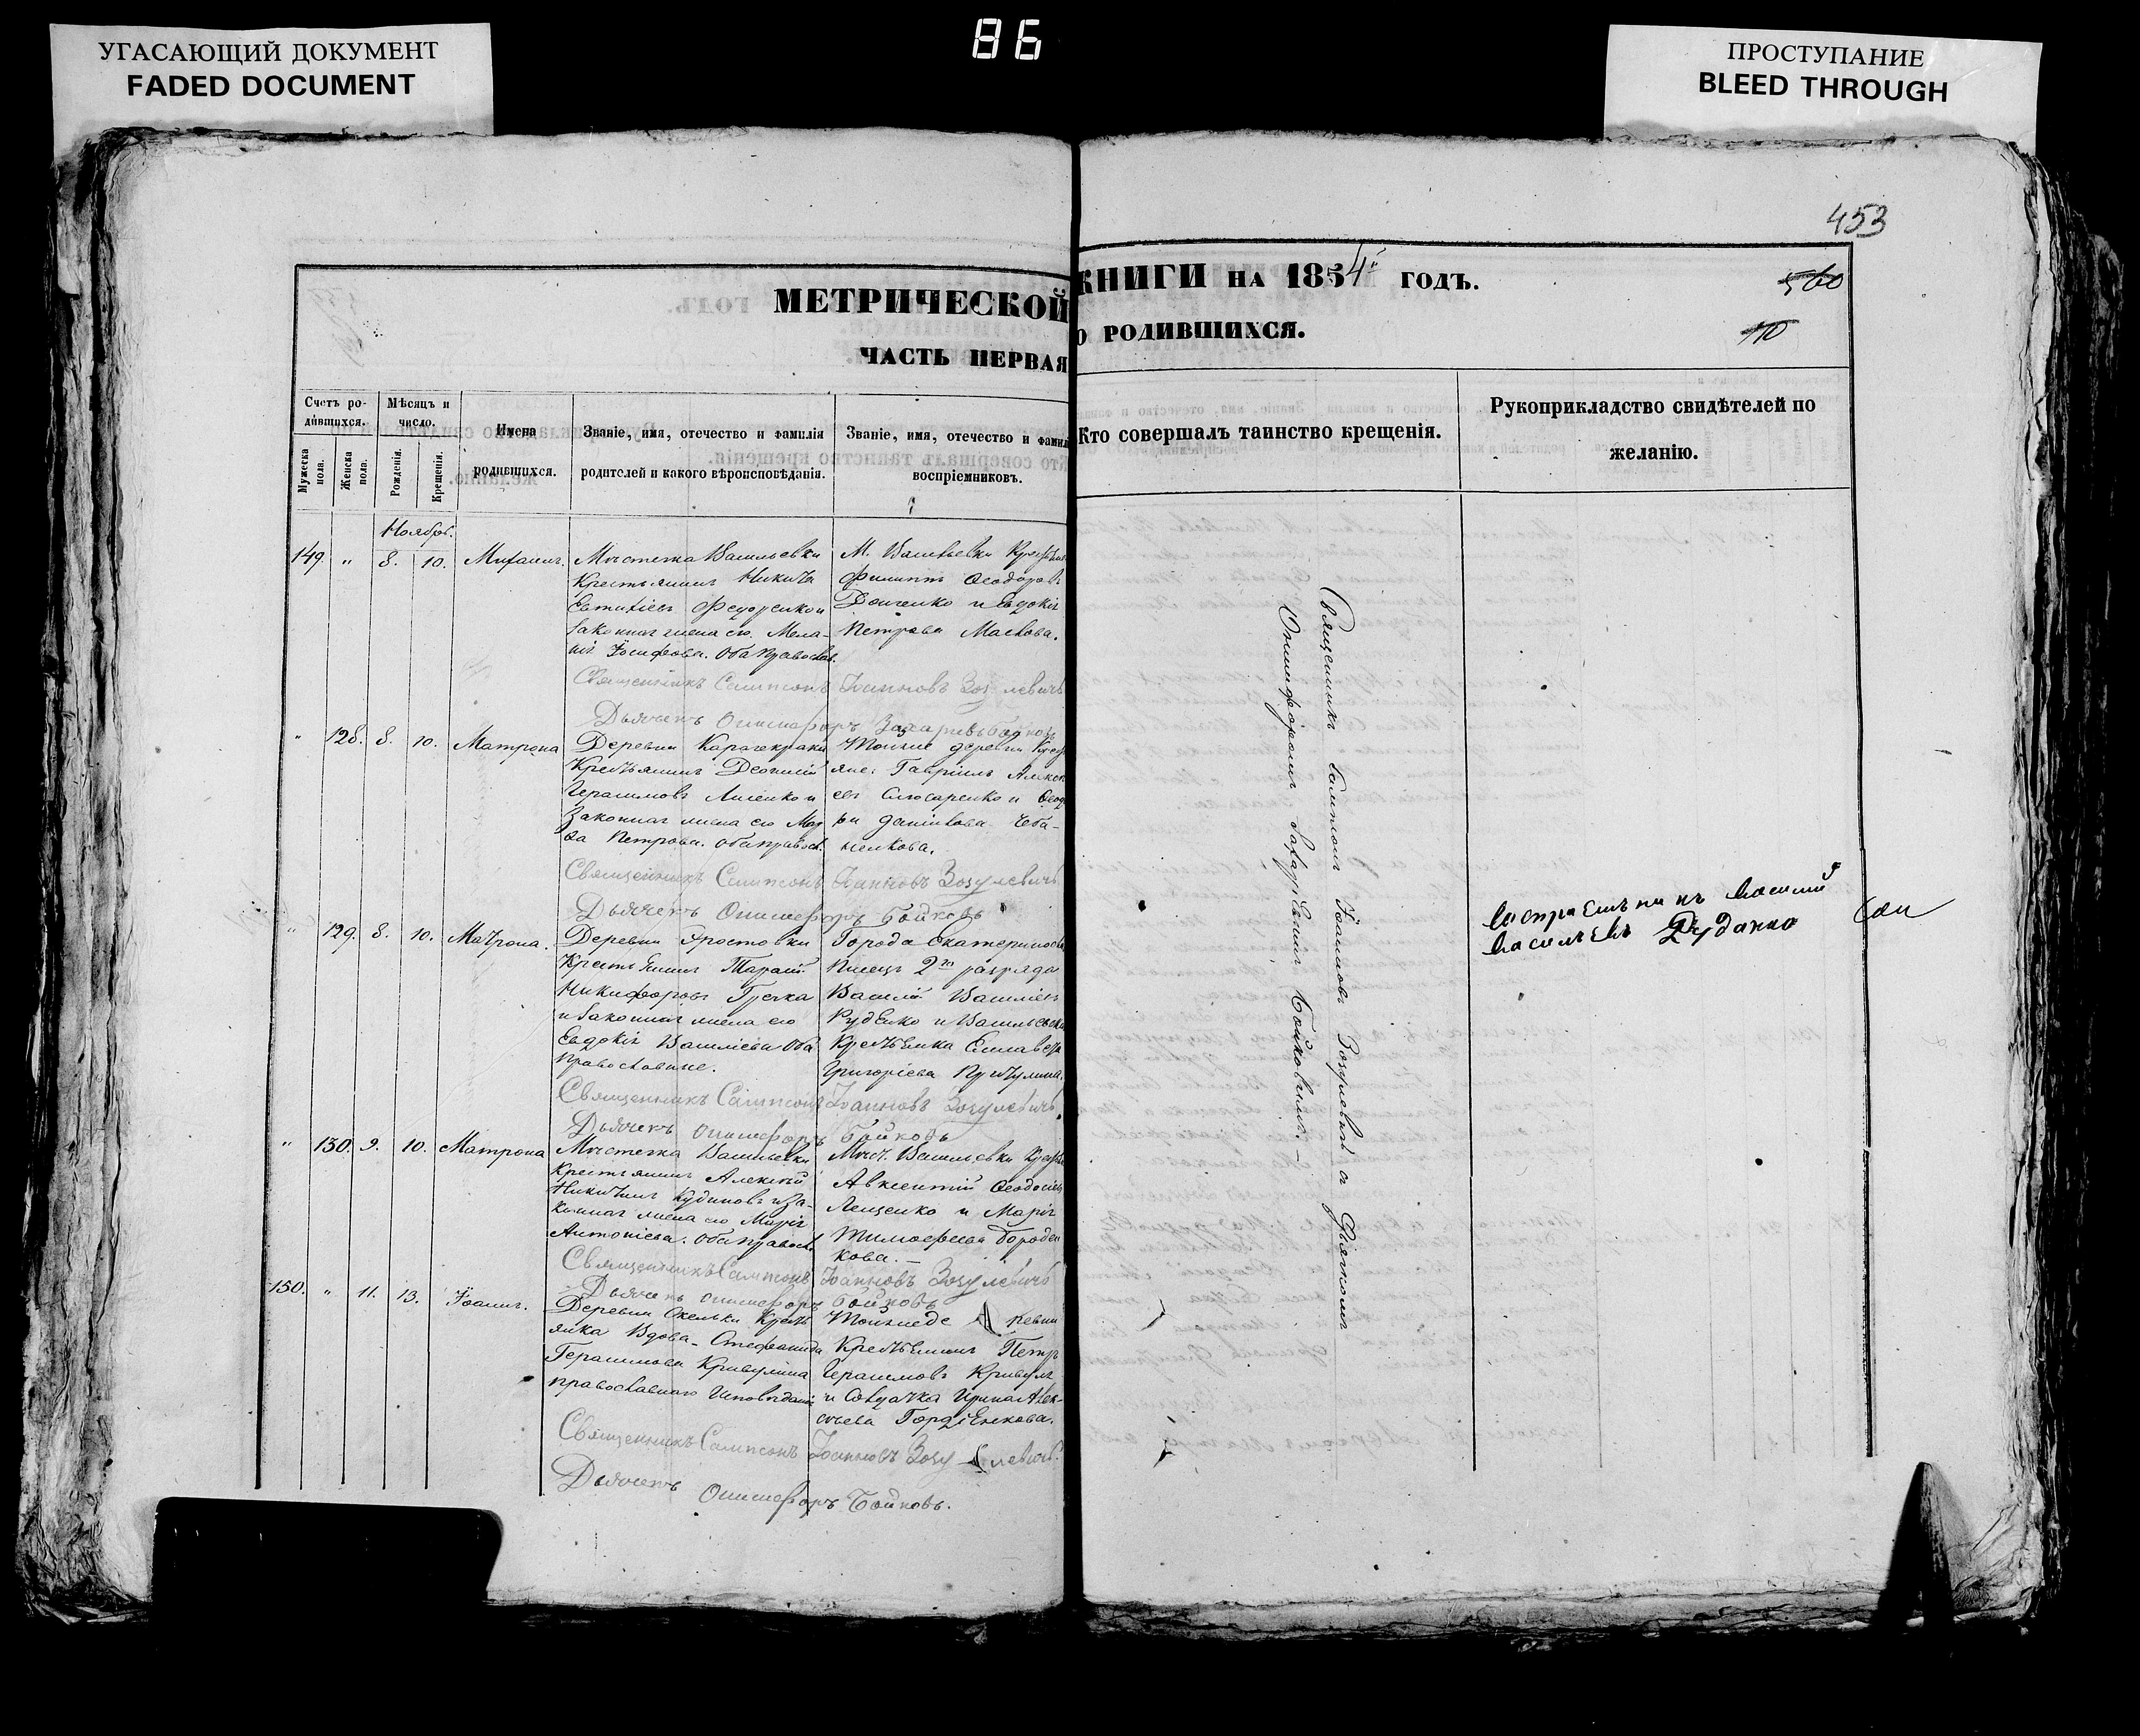 86
УГАСАЮЩИЙ ДОКУМЕНТ
FADED DOCUMENT
ПРОСТУПАНИЕ
BLEED THROUGH
453
МЕТРИЧЕСКОЙ КНИГИ НА 1854й ГОДЪ.
560
ЧАСТЬ ПЕРВАЯ О РОДИВШИХСЯ.
110
Счетъ ро-
дившихся.
Мужеска пола.
Женска пола.
Мѣсяцъ и
число.
Рожденія.
Крещенія.
Имена
родившихся.
Званіе, имя, отечество и фамилія
родителей и какого вѣроисповѣданія.
Званіе, имя, отечество и фамил
воспріемниковъ.
Кто совершалъ таинство крещенія.
Рукоприкладство свидѣтелей по
желанію.
Ноябрь.
149. " 8. 10. Михаилъ.
Мѣстечка Васильевки
Крестьянинъ Никита
Федоренко и
Законная жена его Мела-
нія Іосифова. Оба православ.
М. Васильевки
Филиппъ Ѳеодоровъ
и Евдокія
Петрова Маслова.
Священникъ Сампсонъ Іоанновъ Зозулевичъ
Дьячекъ Онисифоръ Захаріевъ Бойковъ
" 128. 8. 10. Матрона
Деревни Карачекраки
Крестьянинъ Леонтій
Герасимовъ Лисенко и
Законная жена его Мар
ѳа Петрова. оба правосл.
Тойже деревни Крес
яне: Гавріилъ Алекс
евъ Слюсаренко и Ѳеод
ра Данилова Чеба-
ненкова.
Священникъ Сампсонъ Іоанновъ Зозулевичъ
Дьячекъ Онисифоръ Бойковъ
" 129. 8. 10. Матрона.
Деревни Эристовки
Крестьянинъ Тарасій
Никифоровъ Гречка
и Законная жена его
Евдокія Васильева Оба
Православные.
Города Екатеринослав
Писецъ 2го разряда
Василій Васильевъ
Руденко и Васильевска
Крестьянка Елисавета
Григорьева
Священникъ Сампсонъ Іоанновъ Зозулевичъ.
Дьячекъ Онисифоръ Бойковъ
" 130. 9. 10. Матрона
Мѣстечка Васильевки
Крестьянинъ Алексѣй
Никитинъ Кудиновъ и За-
конная жена его Марія
Антоніева. Оба правосл.
Мѣст. Васильевки
Авксентій Ѳеодосіевъ
Лещенко и Марія
Тимоѳеева Бороден
кова.-
Священникъ Сампсонъ Іоанновъ Зозулевичъ
Дьячекъ Онисифоръ Бойковъ
150. " 11. 13. Іоаннъ.
Деревни Скельки Кресть
янка Вдова Стефанида
Герасимова Кривулина
православнаго Исповѣданія
Тойже де ревни
Крестьянинъ Петръ
Герасимовъ Кривуля
и Солдатка Ирина Алек-
сѣева Гордіенкова.
Священникъ Сампсонъ Іоанновъ Зозу левичъ.
Дьячекъ Онисифоръ Бойковъ.
Священникъ Сампсонъ Іоанновъ Зозулевичъ съ Дьячкомъ
Онисифоромъ Захаріевымъ Бойковымъ.-
Воспріемникъ Василий
Васильевъ Руданко